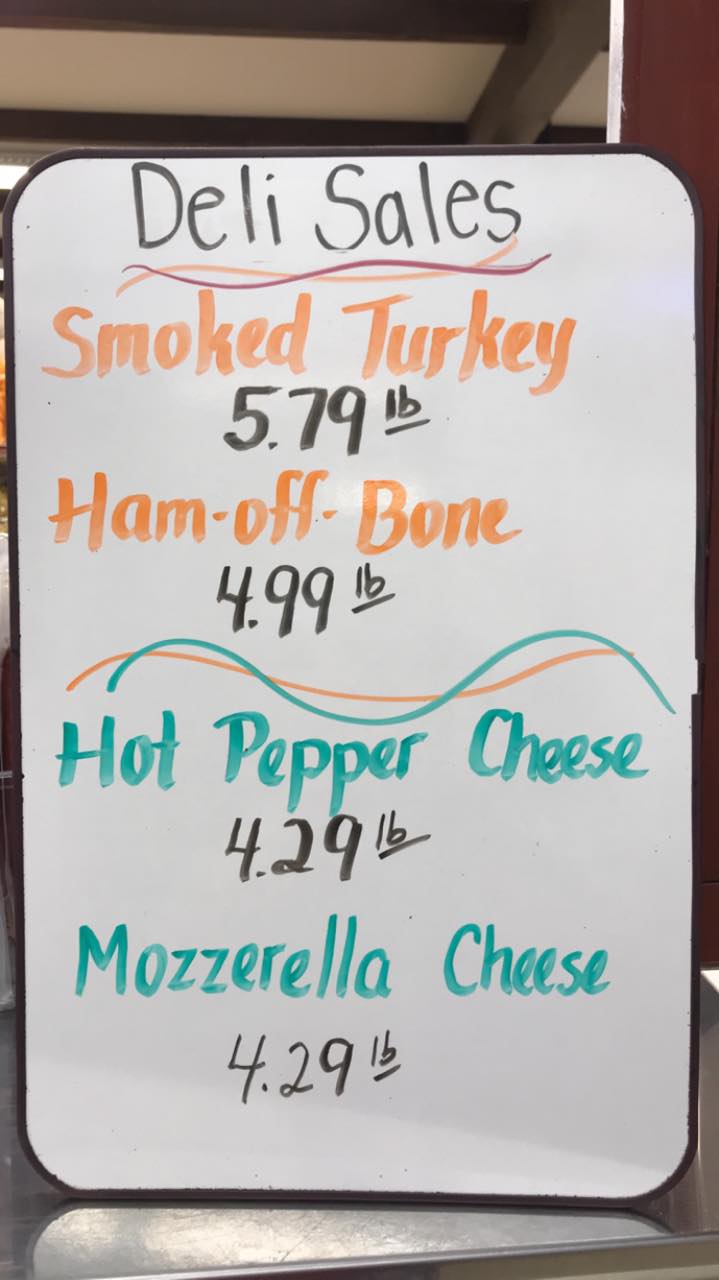 Deli Sales
Smoked Turkey
5.79 lb
Ham-off-Bone
4.99 lb
Hot Pepper Cheese
4.29 lb
Mozzerella Cheese
4.29 lb